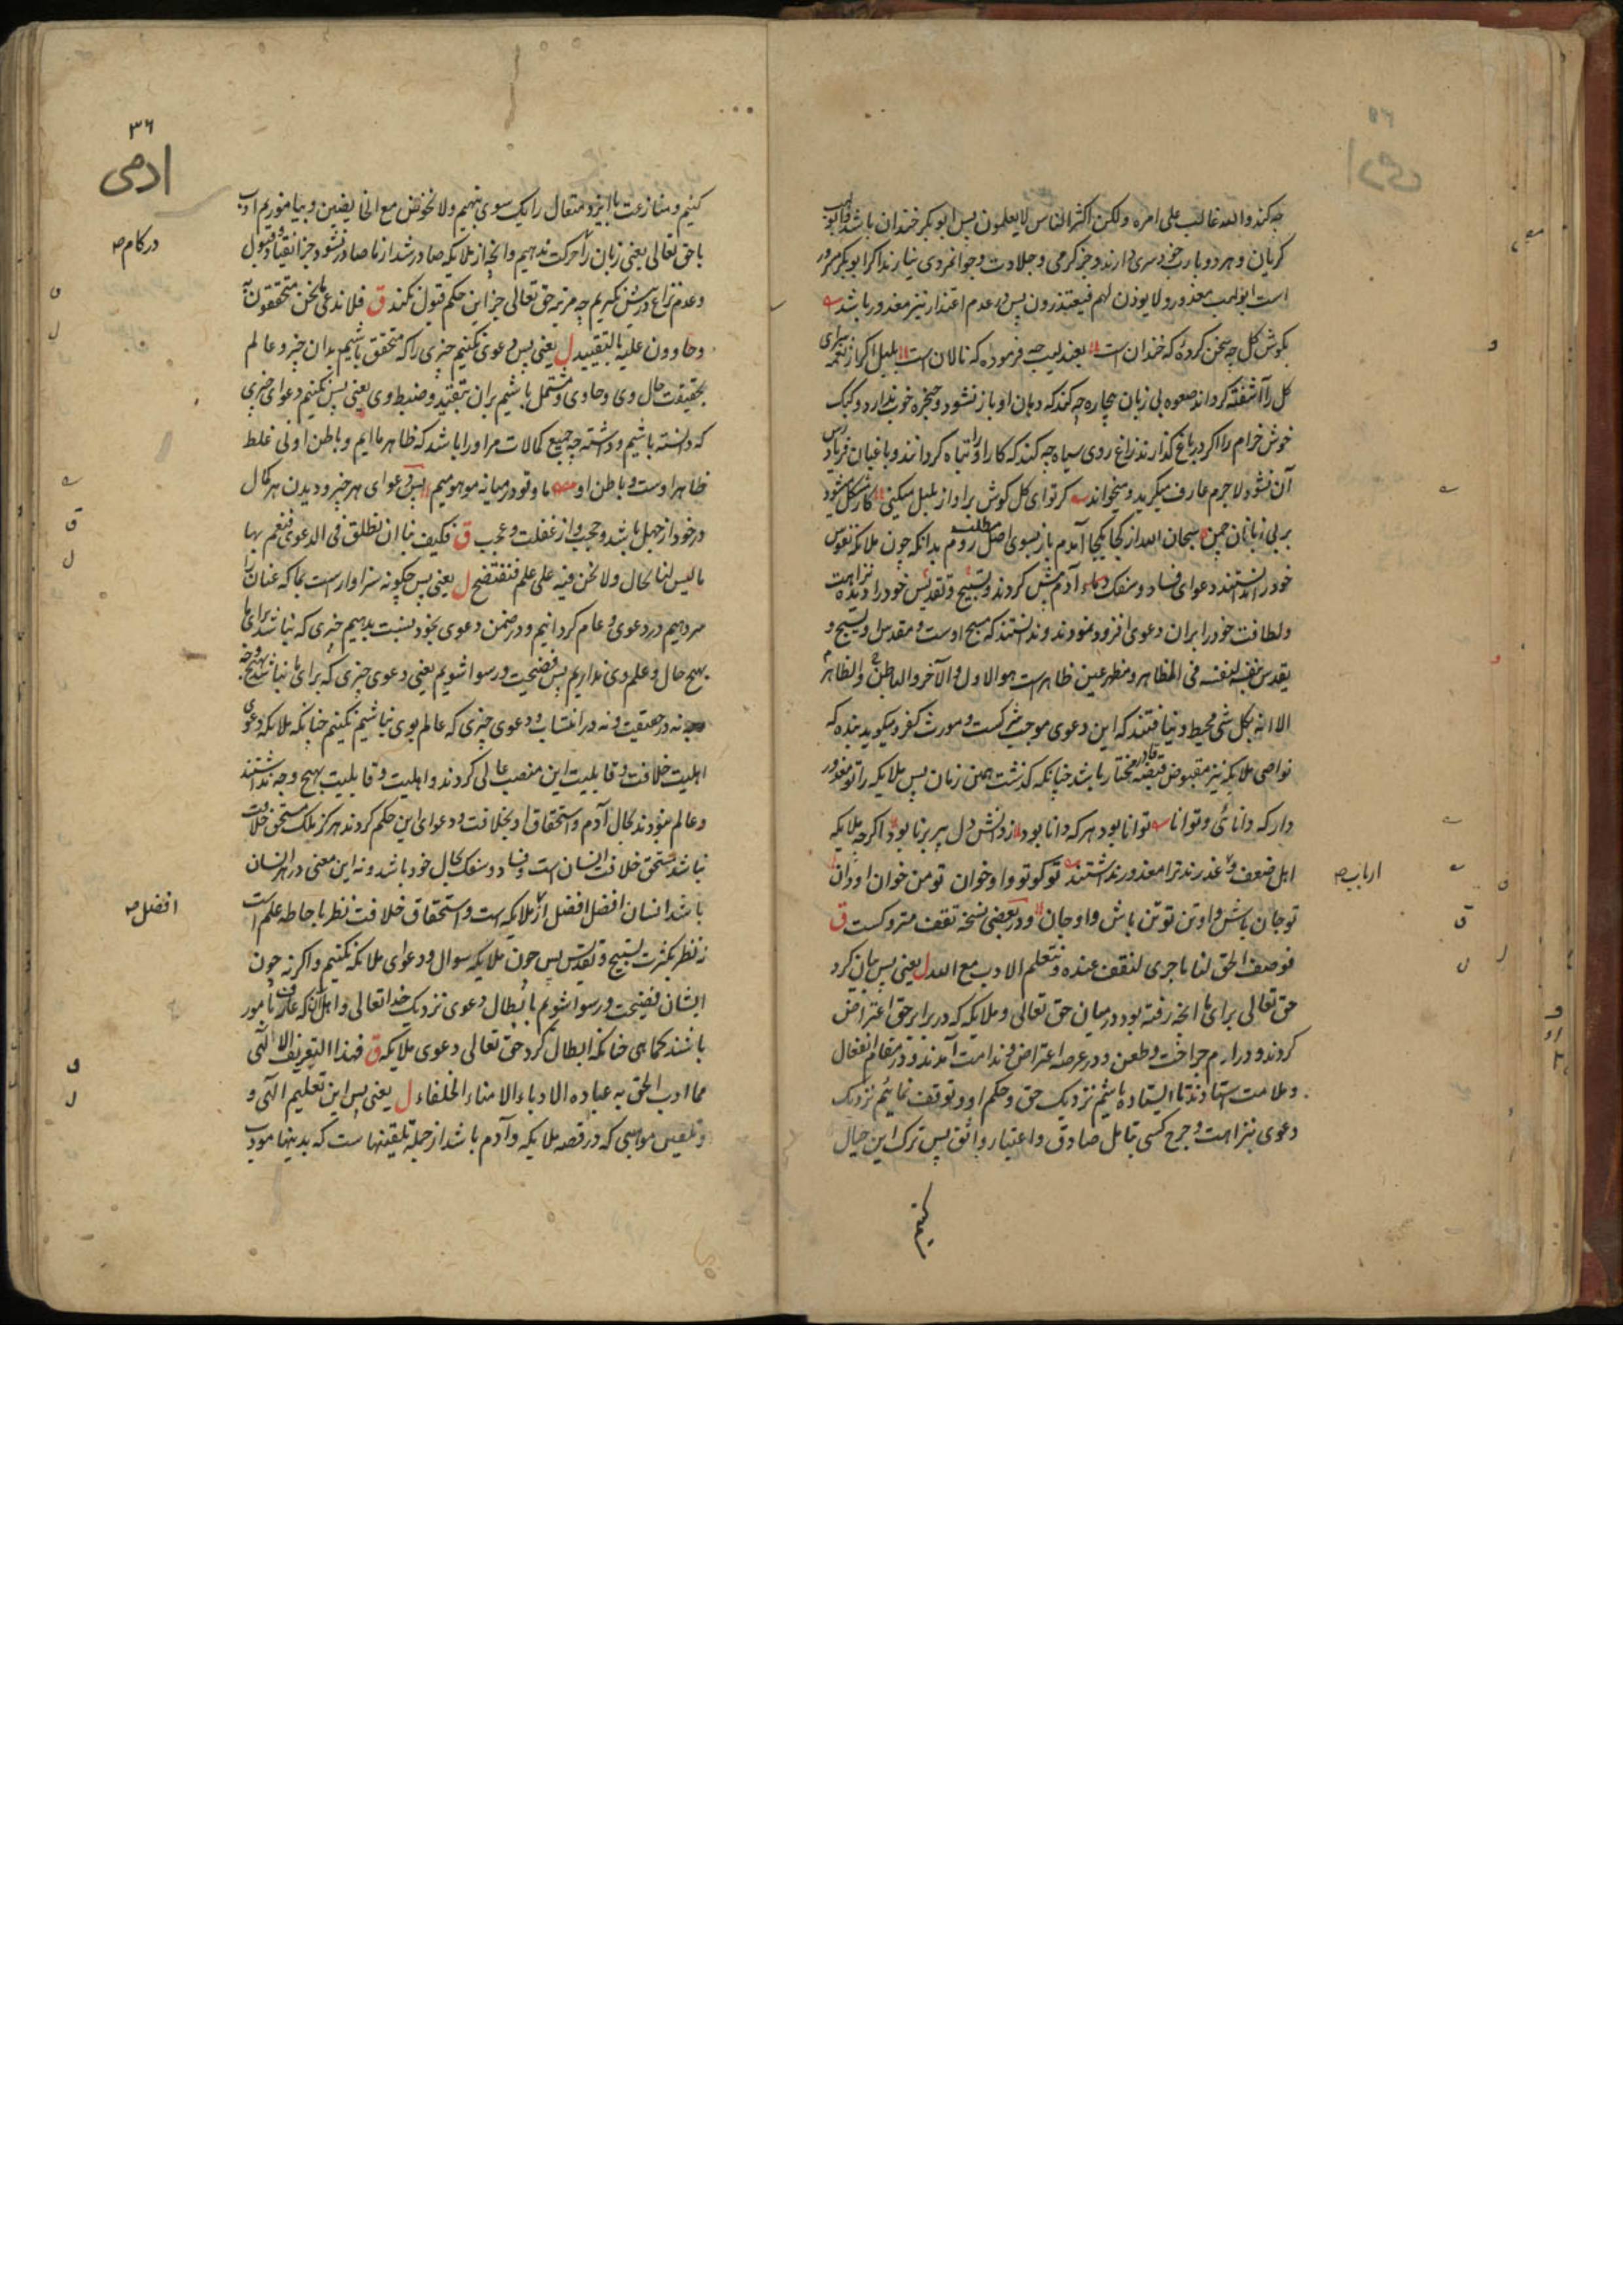 چه کند والله غالب علی امره ولکن اکثر الناس لا یعلمون پس ابو بکر خندان باشد و ابو لهب
کریان و هر دو با رب خود سری دارند و جز کرمی و جلادت و جوانمردی نیارند اکر ابو بکر سرور
است ابو لهب معذور و لا یوذن لهم فیعتذرون پس در عدم اعتذار نیز معذور باشد
بکوش کل چه سخن کردهٔ که خندان است بعندلیب چه فرموده که نالان است بلبل اکر از نغمه سرای
کل را آشفته کرداند صعوه بی زبان بیچاره چه کند که دهان او باز نشود و حنجره خوب ندارد و کبک
خوش خرام را اکر در باغ کذارند زاغ روی سیاه چه کند که کار او را تباه کردانند و باغبان فریاد رس
آن نشود لاجرم عارف میکرید و میخواند کر تو ای کل کوش بر اواز بلبل میکنی کار مشکل میشود
بر بی زبانان چمن سبحان الله از کجا بکجا آمدم باز بسوی اصل مطلب روم بدانکه چون ملائکه نفوس
خود را ندانستند دعوای فساد و سفک دماء آدم پیش کردند و تسبیح و تقدیس خود را دیده نزاهت
و لطافت خود را بران دعوی افزود نمودند و ندانستند که مسبح اوست و مقدس او یسبح و
یقدس نفسه لنفسه فی المظاهر و مظهر عین ظاهرست هو الاول و الآخر و الباطن و الظاهر
الا انه بکل شی محیط و نیافتند که این دعوی موجب شرکست و مورث کفر و میکوید بنده که
نواصی ملایکه نیز مقبوض قبضه قادر مختار باشد چنانکه کذشت همین زمان پس ملایکه را تو معذور
دار که دانائی و توانا توانا بود هر که دانا بود ز دانش دل پیر برنا بود اکرچه ملایکه
اهل ضعف و عذرند ترا معذور نداشتند تو کو تو و او خوان تو من خوان او دان
تو جان باش و او تن تو تن باش و او جان و در بعضی نسخه تقف متروکست ق
فوصف الحق لنا ما جری لنقف عنده و نتعلم الادب مع الله ل یعنی پس بیان کرد
حق تعالی برای ما انچه رفته بود در میان حق تعالی و ملایکه که در برابر حق اعتراض
کردند و در آدم جراحت و طعن و در عرصه اعتراض ندامت آمدند و در مقام انفعال
و ملامت استادند تا ایستاده باشیم نزدیک حق و حکم او و توقف نمائیم نزدیک
دعوی نزاهت و جرح کسی بتامل صادق و اعتبار واثق پس ترک این خیال
کنیم
ارباب صح
۳۶
ادمی
کنیم و منازعت با ایزد متعال را یک سوی نهیم و لا نخوض مع الخایضین و بیاموزیم ادب
با حق تعالی یعنی زبان را حرکت ندهیم و انچه از ملایکه صادر شد از ما صادر نشود جز انقیاد و قبول
و عدم نزاع در پیش نکیریم چه مرتبه حق تعالی جز این حکم قبول نکند ق فلا ندعی ما نحن متحققون به
و حاوون علیه بالتقیید ل یعنی پس دعوی نکنیم چیزی را که متحقق باشیم بدان چیز و عالم
بحقیقت حال وی و حاوی و مشتمل باشیم بران بتقید و ضبط وی یعنی پس نکنیم دعوای چیزی
که دانسته باشیم و داشته چه جمیع کمالات مر او را باشد که ظاهر ما ایم و باطن او نی غلط
ظاهر اوست و باطن او ما و تو در میانه موهومیم پس دعوای هر چیز و دیدن هر کمال
در خود از جهل باشد و عجب و از غفلت و عجب ق فکیف بنا ان نطلق فی الدعوی فنعم بها
ما لیس لنا بحال و لا نحن فیه علی علم فنفتضح ل یعنی پس چکونه سزاوارست بما که عنان را
سر دهیم در دعوی و عام کردانیم و در ضمن دعوی بخود نسبت بدهیم چیزی که نباشد برای ما
بهیچ حال و علم وی نداریم پس فضیحت و رسوا شویم یعنی دعوی چیزی که برای ما نباشد بهیچ وجه
نه در حقیقت و نه در انتساب و دعوی چیزی که عالم بوی نباشیم نکنیم چنانکه ملایکه دعوی
اهلیت خلافت و قابلیت این منصب عالی کردند و اهلیت و قابلیت بهیچ وجه نداشتند
و عالم نبودند بحال آدم و استحقاق او بخلافت و دعوای این حکم کردند هرکز ملک مستحق خلافت
نباشد مستحق خلافت انسان است و فساد و سفک کمال خود باشد و نه این معنی در هر انسان
باشد انسان افضل از ملایکه است و استحقاق خلافت نظر باحاطه علم است
نه نظر بکثرت تسبیح و تقدیس پس چون ملایکه سوال و دعوای ملائکه نکنیم و اکر نه چون
ایشان فضیحت و رسوا شویم بابطال دعوی نزدیک خدا تعالی و اهل الله که عارف بامور
باشند کما هی چنانکه ابطال کرد حق تعالی دعوی ملایکه ق فهذا التعریف الالهی
مما ادب الحق به عباده الادباء الامناء الخلفاء ل یعنی پس این تعلیم آلهی و
و تلقین مواهبی که در قصه ملایکه و آدم باشد از جمله تلقینهاست که بدینها مودب
درکام صح
افضل صح